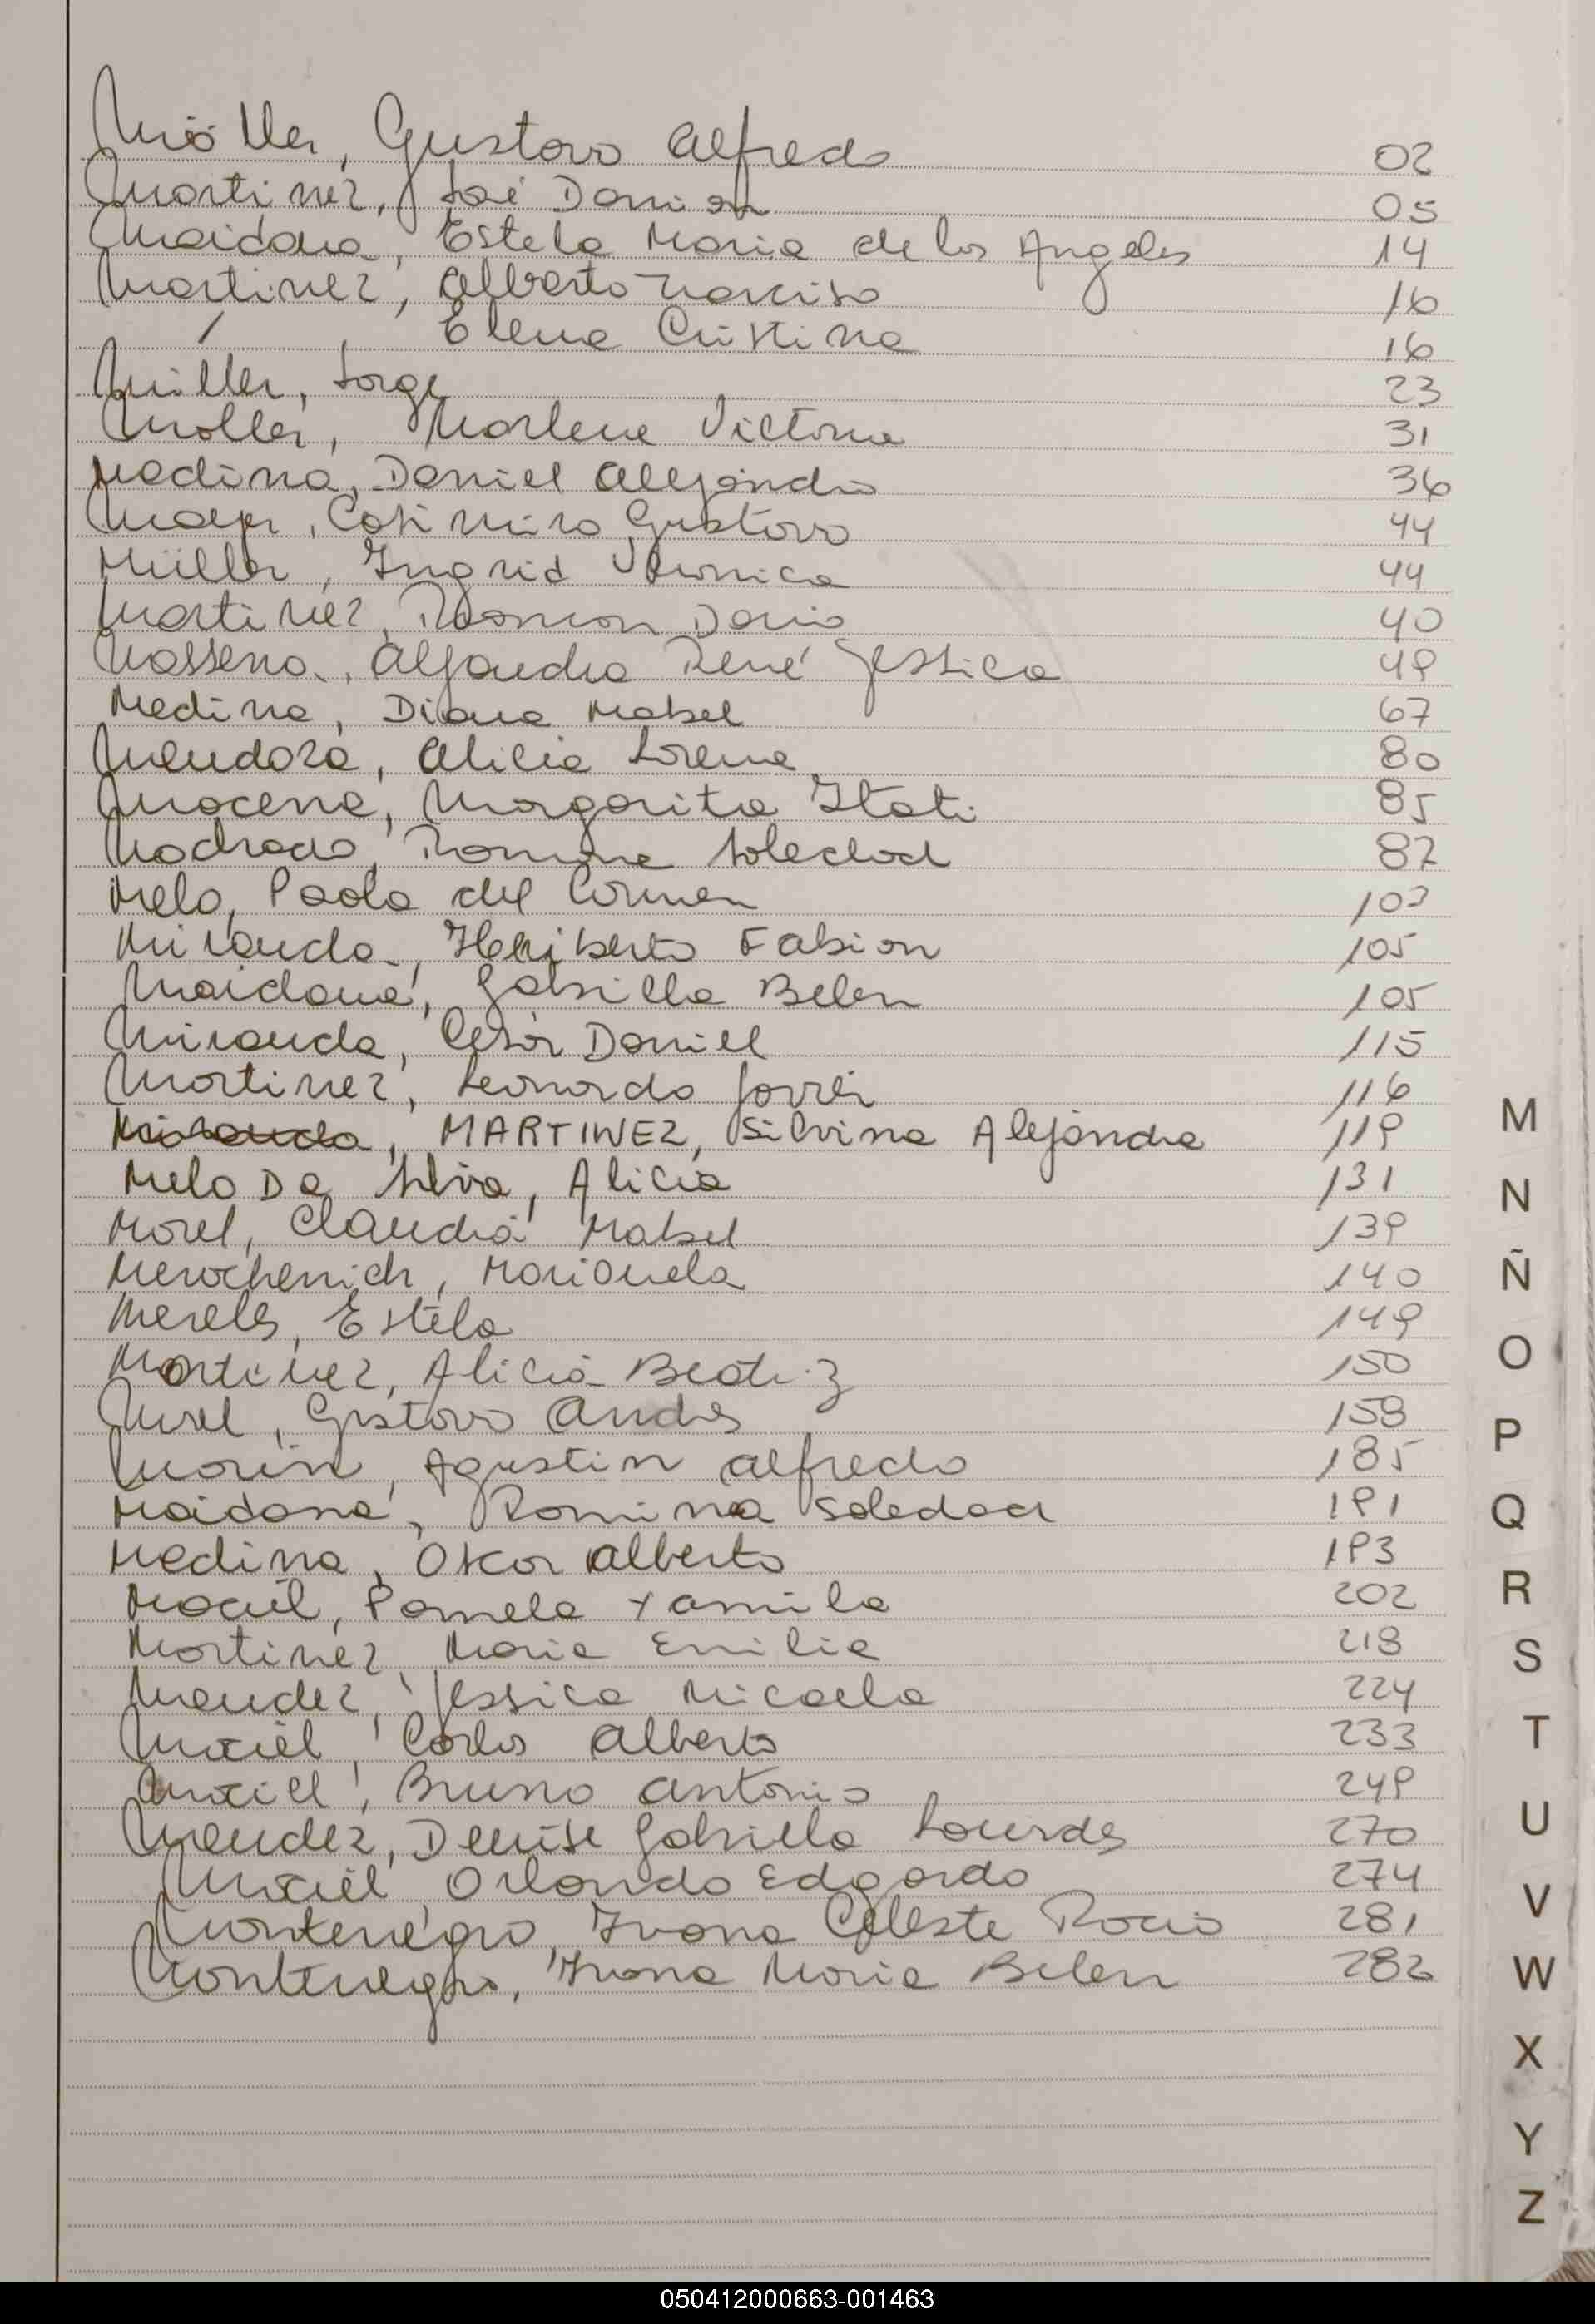 Möller, Gustavo Alfredo 02
Martinez, José Damian 05
Maidana, Estela Maria de los Angeles 14
Martinez, Alberto Narciso 16
/ , Elena Cristina 16
Müller, Jorge 23
Moller, Marlene Victoria 31
Medina, Daniel Alejandro 36
Mayer, Casimiro Gustavo 44
Müller, Ingrid Veronica 44
Martinez, Ramon Dario 40
Massena, Alejandra René Jessica 49
Medina, Diana Mabel 67
Mendoza, Alicia Lorena 80
Macena, Margarita Itati 85
Madrazo, Romina Soledad 87
Melo, Paola del Carmen 103
Miranda, Heriberto Fabian 105
Maidana, Gabriela Belen 105
Miranda, Cesar Daniel 115
Martinez, Leonardo Javier 116
Miranda, MARTINEZ, Silvina Alejandra 119
Melo Da Silva, Alicia 131
Morel, Claudia Mabel 139
Merochenich, Marianela 140
Mereles, Estela 149
Martinez, Alicia Beatriz 150
Morel, Gustavo Andres 159
Morin, Agustin Alfredo 185
Maidana, Romina Soledad 191
Medina, Oscar Alberto 193
Maciel, Pamela Yamila 202
Martinez, Maria Emilia 218
Mendez, Jessica Micaela 224
Maciel, Carlos Alberto 233
Maciel, Bruno Antonio 249
Mendez, Denise Gabriela Lourdes 270
Maciel, Orlando Edgardo 274
Montenegro, Ivana Celeste Rocio 281
Montenegro, Ivana Maria Belen 282
M
N
Ñ
O
P
Q
R
S
T
U
V
W
X
Y
Z
050412000663-001463